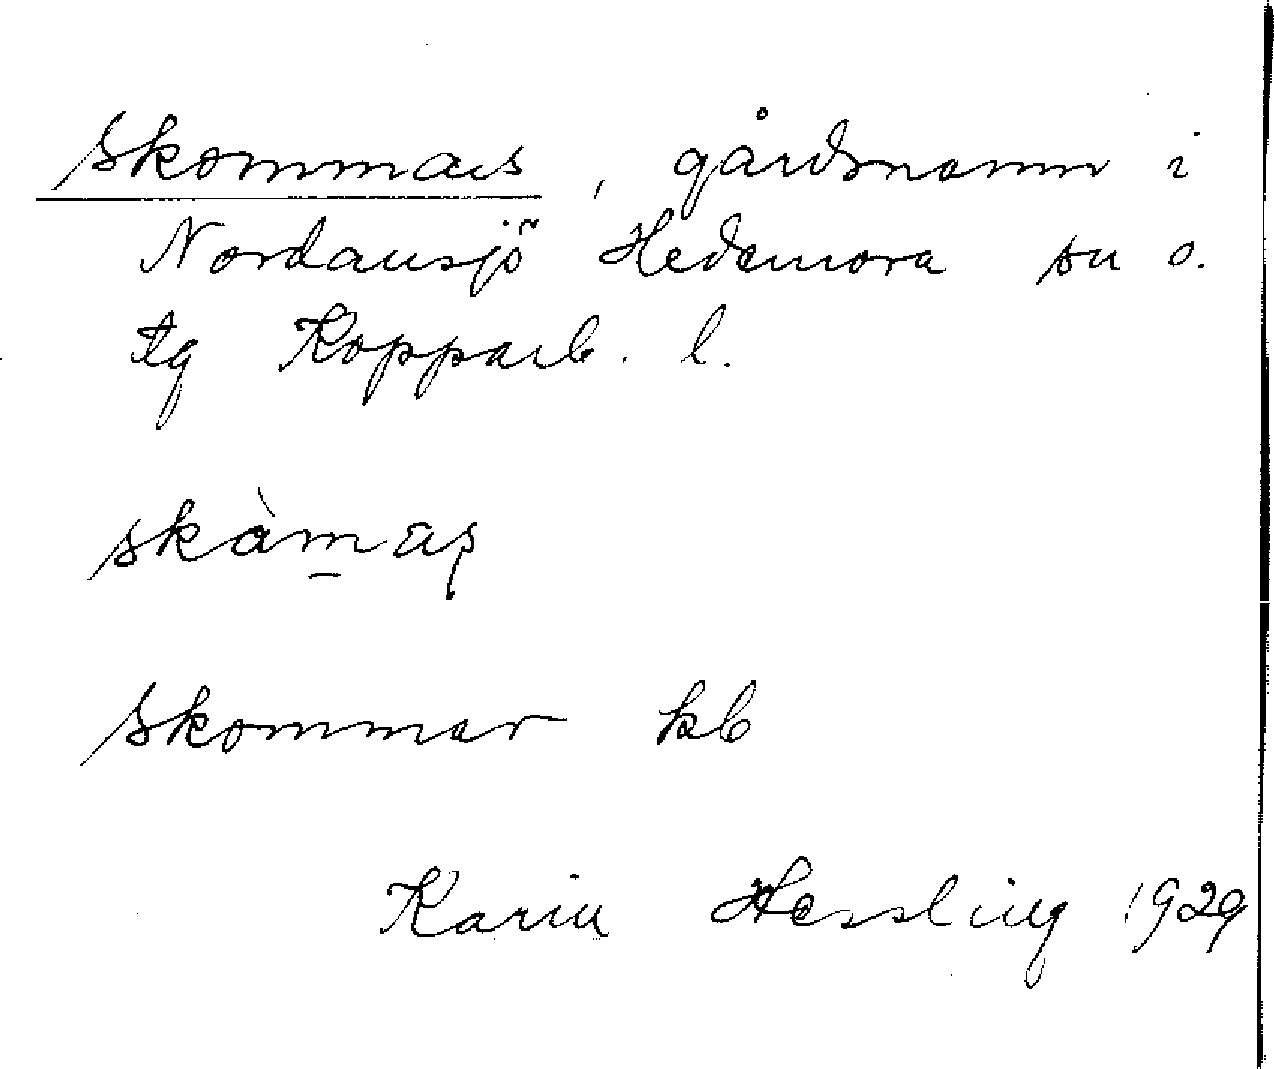 Skommars, gårdsnamn i
Nordansjö Hedemora sn o.
tg Kopparb. l.
skàmaṣ
Skommar kb
Karin Hessling 1929